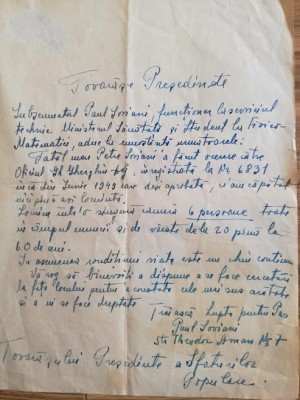 Tovarășe Președinte
Subsemnatul Paul Soriani, funcționar la serviciul
technic Ministerul Sănătății și Student la Fizico-
Matematici, aduc la cunoștință următoarele:
Tatăl meu Petre Soriani a făcut cerere către
Oficiul Gh Gheorghiu-Dej, înregistrată la Nr 6821
încă din Iunie 1949 care deși aprobată, n'am căpătat
nici până azi locuința.
Locuim într'o singură cameră 6 persoane toate
în câmpul muncii și de vârsta dela 20 până la
60 de ani.
În asemenea condițiuni viața este un chin continuu
Vă rog să binevoiți a dispune a se face cercetări
la fața locului pentru a constata cele mai sus arătate
și a ni se face dreptate
Trăiască lupta pentru Pace
Paul Soriani
Str Theodor Aman No 7
Tovarășului Președinte a Sfaturilor
Populare.